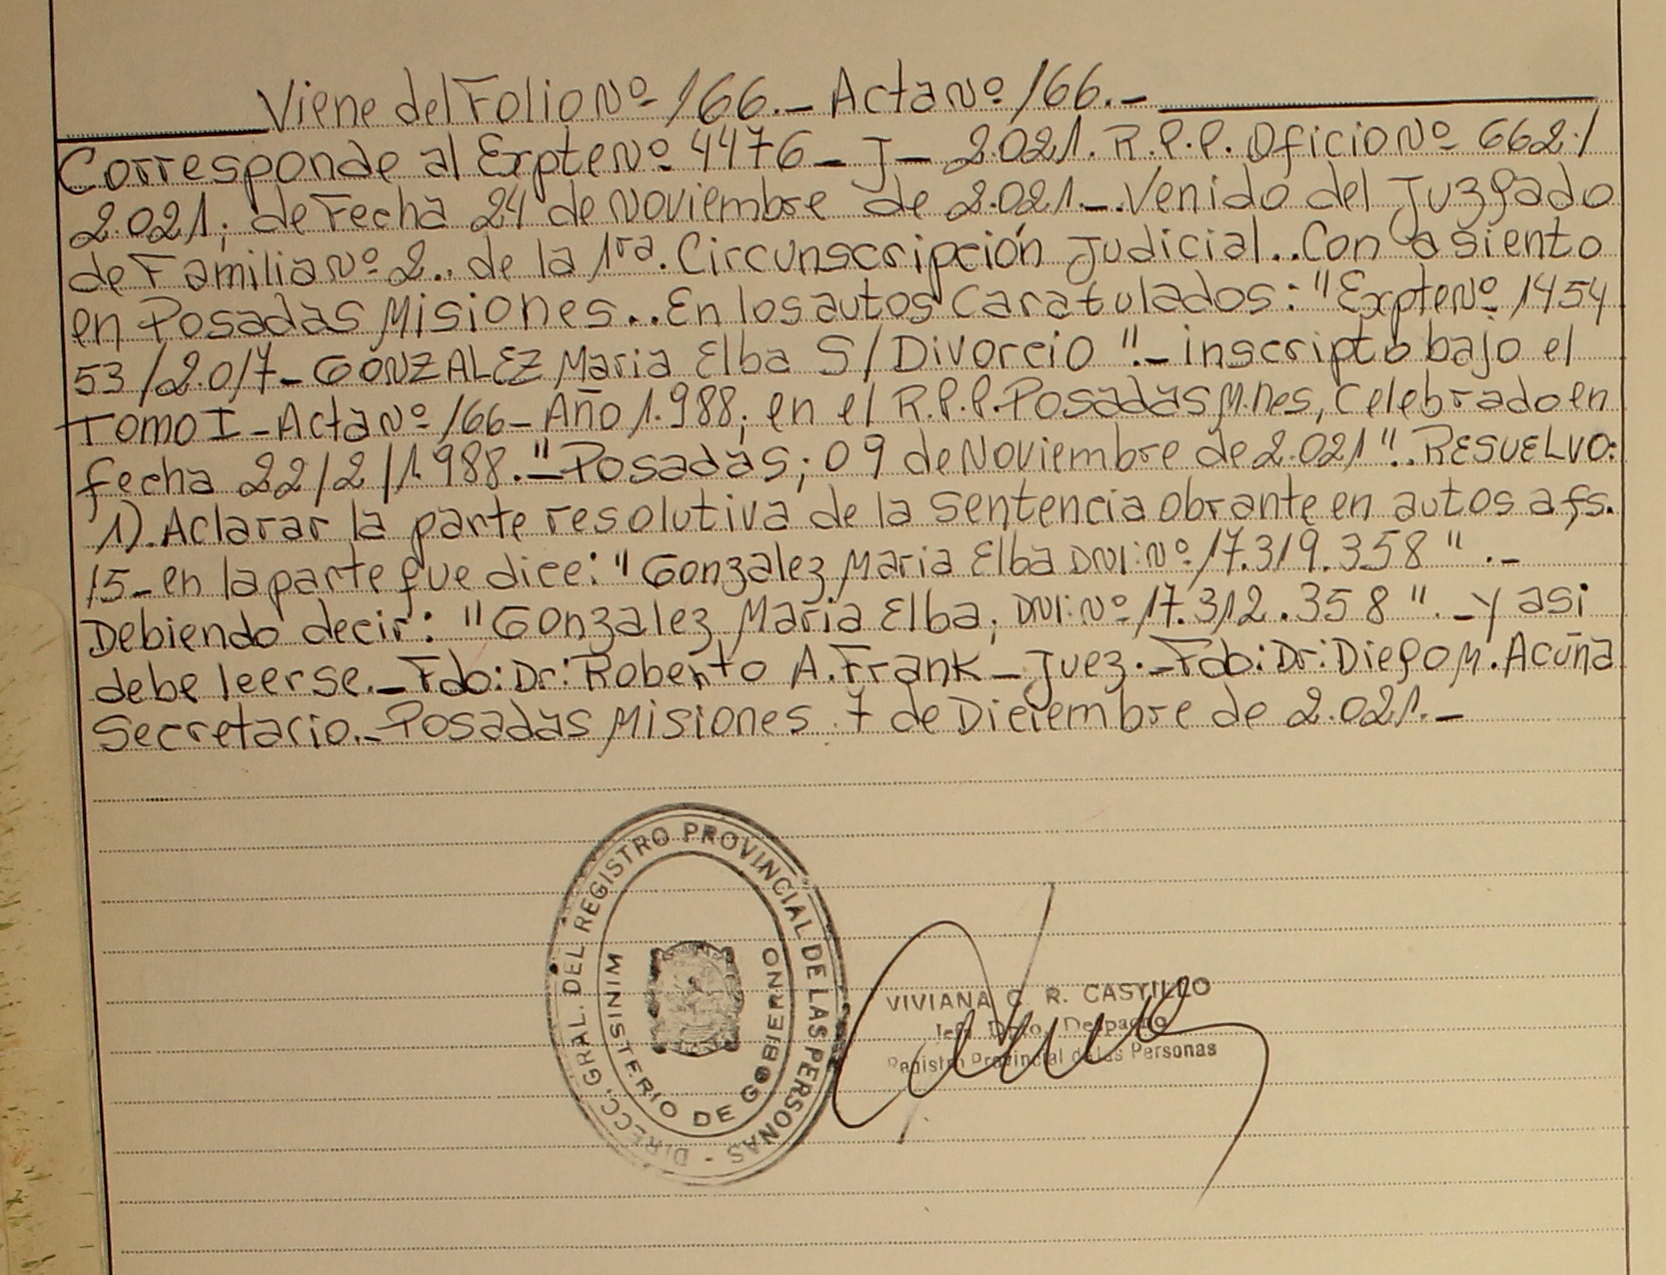 Viene del Folio Nº 166.- Acta Nº 166.-
Corresponde al Expte Nº 4476 - J - 2.021. R.P.P. Oficio Nº 662./
2.021; de Fecha 24 de Noviembre de 2.021.- Venido del Juzgado
de Familia Nº 2.. de la 1ra. Circunscripción Judicial.. Con asiento
en Posadas Misiones.. En los autos Caratulados: "Expte Nº 1454
53/2.017- GONZALEZ Maria Elba S/Divorcio".- inscripto bajo el
TOMO I - Acta Nº 166 - Año 1.988; en el R.P.P. Posadas M.nes, Celebrado en
fecha 22/2/1.988."- Posadas; 09 de Noviembre de 2.021".. RESUELVO:
1). Aclarar la parte resolutiva de la sentencia obrante en autos a fs.
15- en la parte que dice: "Gonzalez Maria Elba DNI: Nº 17.319.358".-
Debiendo decir: "Gonzalez Maria Elba; DNI: Nº 17.312.358".- y asi
debe leerse.- Fdo: Dr: Roberto A. Frank - Juez.- Fdo: Dr: Diego M. Acuña
Secretario.- Posadas Misiones 7 de Diciembre de 2.021.-
DIRECC. GRAL. DEL REGISTRO PROVINCIAL DE LAS PERSONAS -
MINISTERIO DE GOBIERNO
VIVIANA C. R. CASTILLO
Jefe Dpto. Despacho
Registro Provincial de las Personas